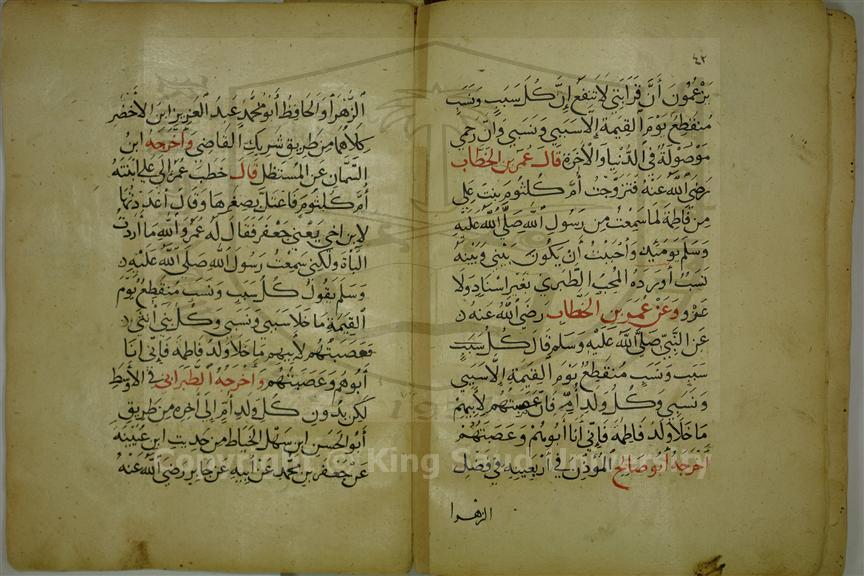 ٤٢
يزعمون أن قرابتي لا تنفع إن كل سبب ونسب
منقطع يوم القيمة إلا سببي ونسبي وان رحمي
موصولة في الدنيا والآخرة قال عمر بن الخطاب
رضي الله عنه فتزوجت أم كلثوم بنت علي
من فاطمة لما سمعت من رسول الله صلى الله عليه
وسلم يومئذ وأحببت أن يكون بيني وبينه
نسب أورده المحب الطبري بغير اسناد ولا
عزو وعن عمر بن الخطاب رضي الله عنه
عن النبي صلى الله عليه وسلم قال كل سبب
سبب ونسب منقطع يوم القيمة إلا سببي
ونسبي وكل ولد أب فان عصبتهم لأبيهم
ما خلا ولد فاطمة فإني أنا أبوهم وعصبتهم
أخرجه أبو صالح المؤذن في أربعينه في فضل
الزهرا
الزهرا والحافظ أبو محمد عبد العزيز ابن الأخضر
كلاهما من طريق شريك القاضي وأخرجه ابن
السمان عن المستظل قال خطب عمر إلى علي ابنته
أم كلثوم فاعتل بصغرها وقال أعددتها
لابن اخي يعني جعفر فقال له عمر والله ما أردت
الباة ولكني سمعت رسول الله صلى الله عليه
وسلم يقول كل سبب ونسب منقطع يوم
القيمة ما خلا سببي ونسبي وكل بني أنثى
فعصبتهم لأبيهم ما خلا ولد فاطمة فإني انا
أبوهم وعصبتهم وأخرجه الطبراني في الأوسط
لكن بدون كل ولد أم إلى أخره من طريق
أبو الحسن ابن سهل الخياط من حديث ابن عيينة
عن جعفر بن محمد عن أبيه عن جابر رضي الله عنه
Copyright © King Saud University